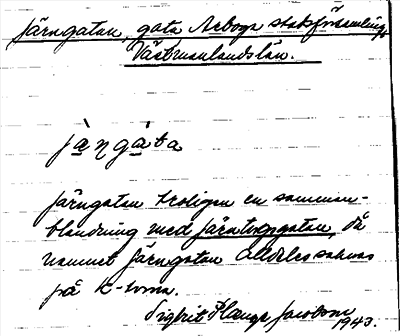 Järngatan, gata Arboga stadsförsamling,
Västmanlands län.
jàngàta
Järngatan troligen en samman-
blandning med Järntorgsgatan, då
namnet Järngatan alldeles saknas
på K-torna.
Sigbrit Plange Jacobson
1943.